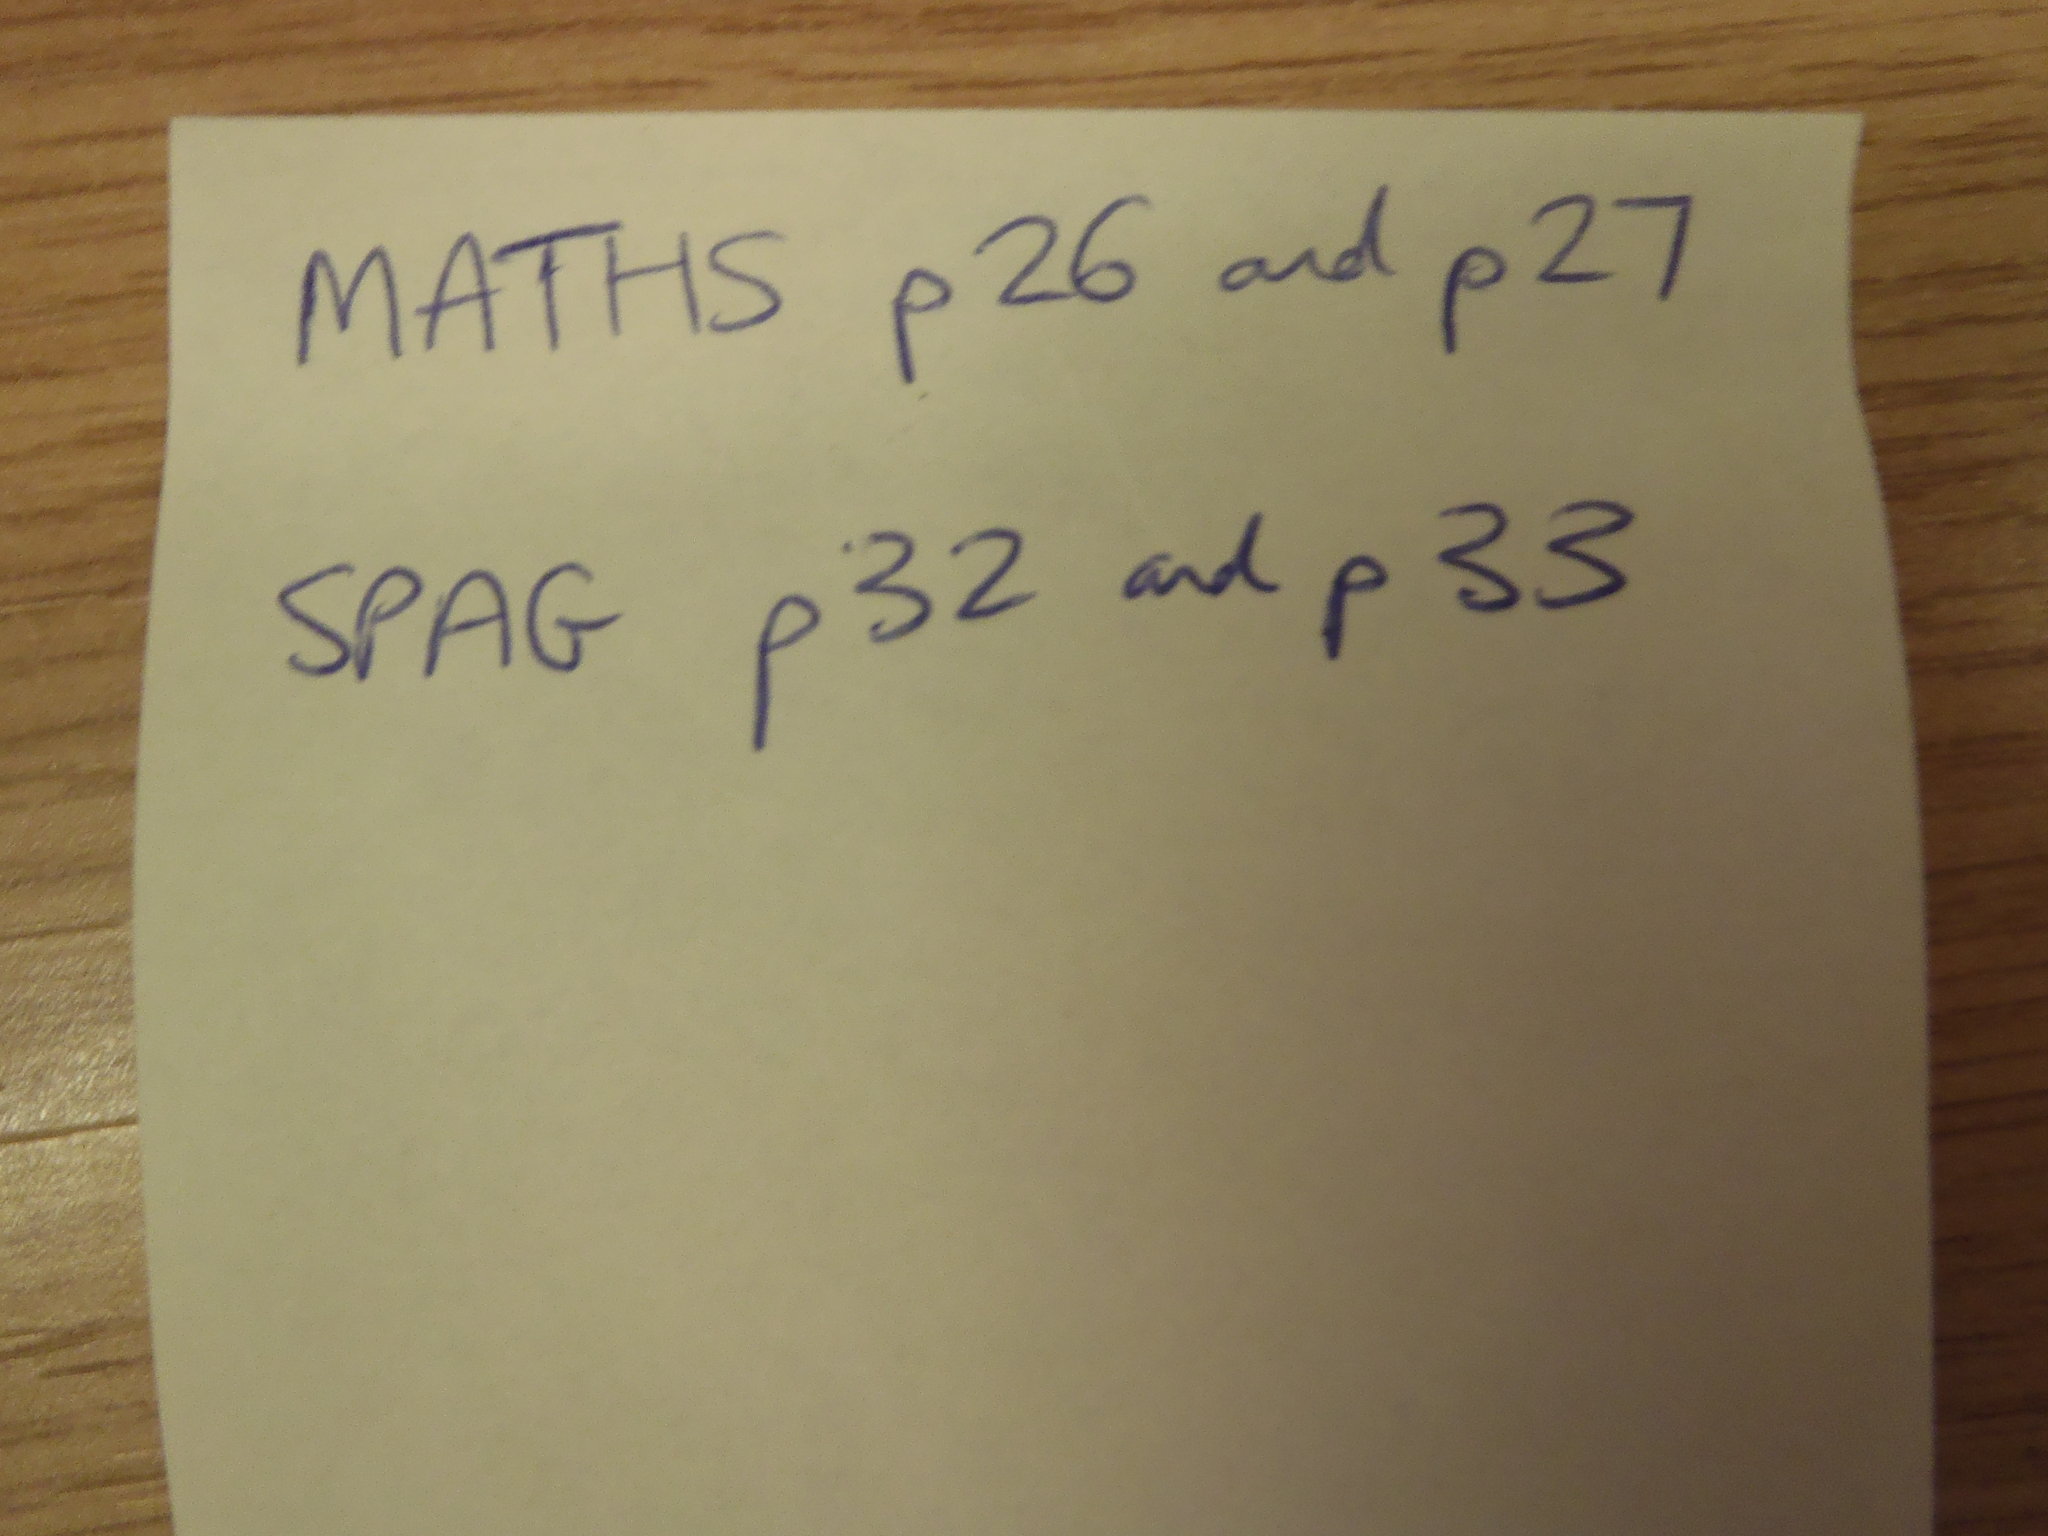 MATHS p26 and p27
SPAG p32 and p33